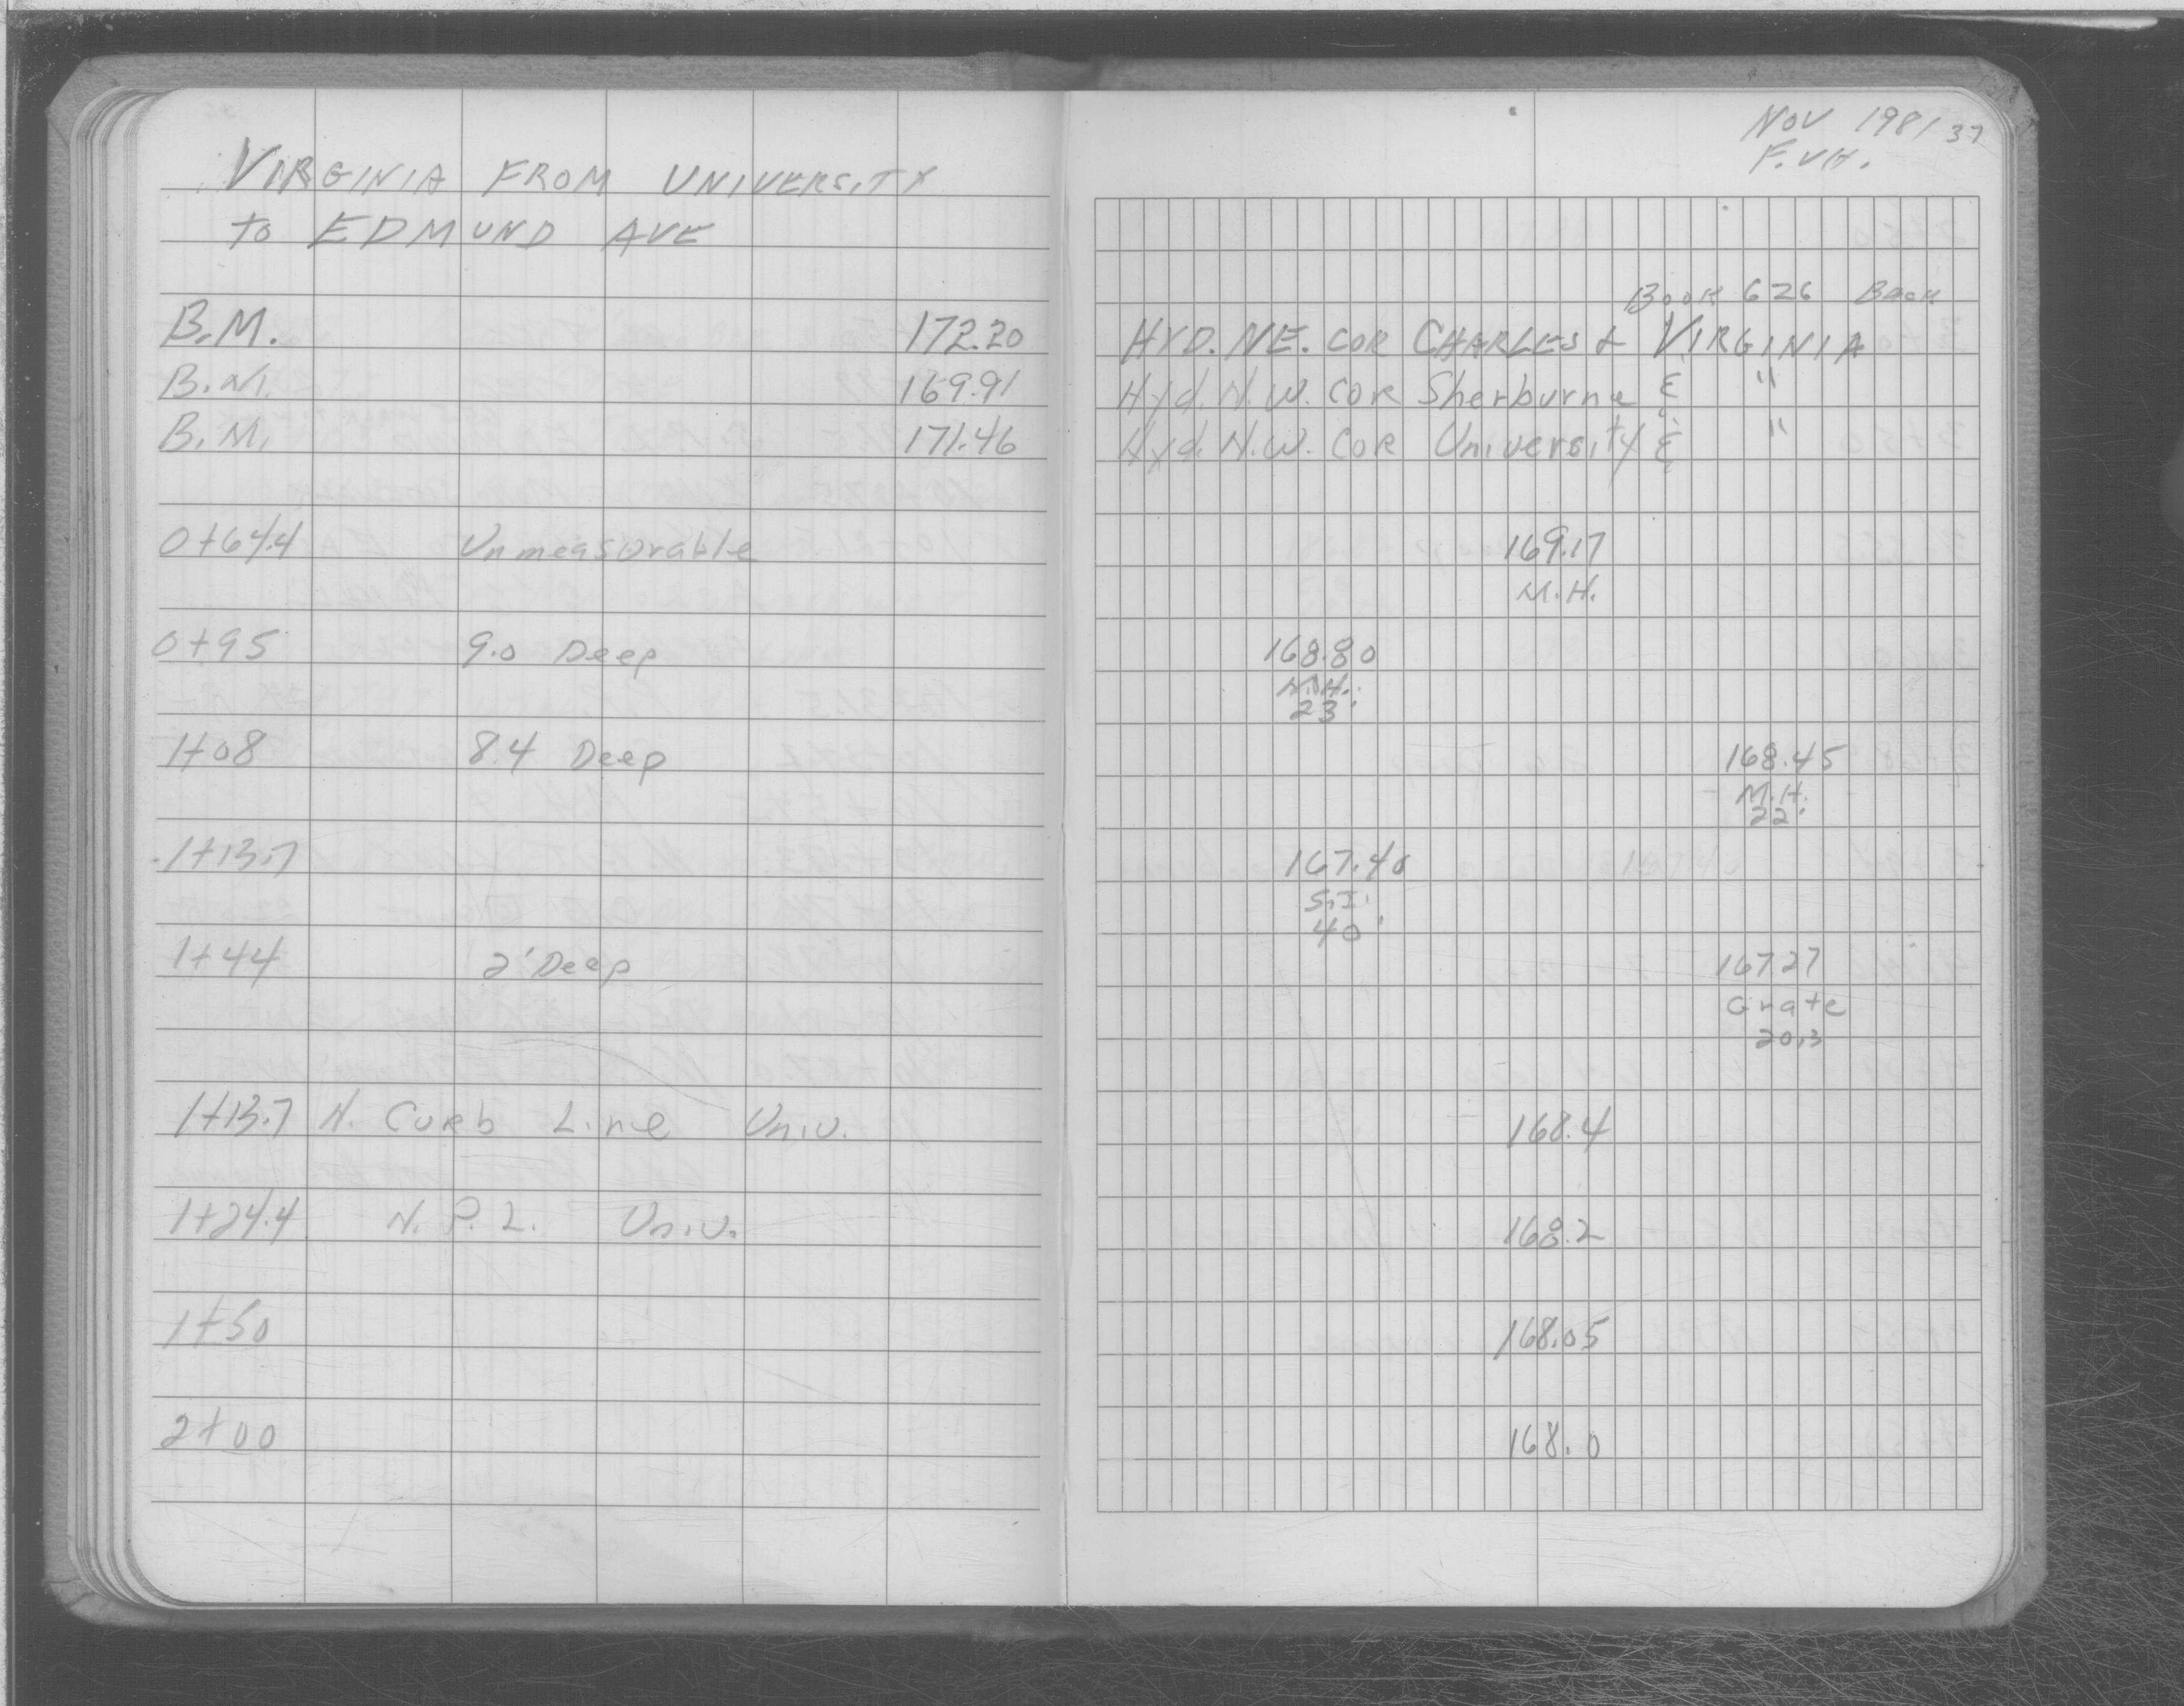 NOV 1981 37
F.VH.
VIRGINIA FROM UNIVERSITY
to EDMUND AVE
Book 626 Back
B.M. 172.20 HYD. NE. COR CHARLES & VIRGINIA
B.M. 169.91 Hyd. N.W. COR Sherburne & "
B.M. 171.46 Hyd. N.W. COR University & "
0+64.4 Unmeasurable 169.17
M.H.
0+95 9.0 Deep 168.80
M.H.
23'
1+08 8.4 Deep 168.45
M.H.
22'
1+13.7 167.40
S.I.
40'
1+44 2' Deep 167 27
Grate
20.3
1+13.7 N. Curb Line Univ. 168.4
1+24.4 N. P. L. Univ. 168.2
1+50 168.05
2+00 168.0